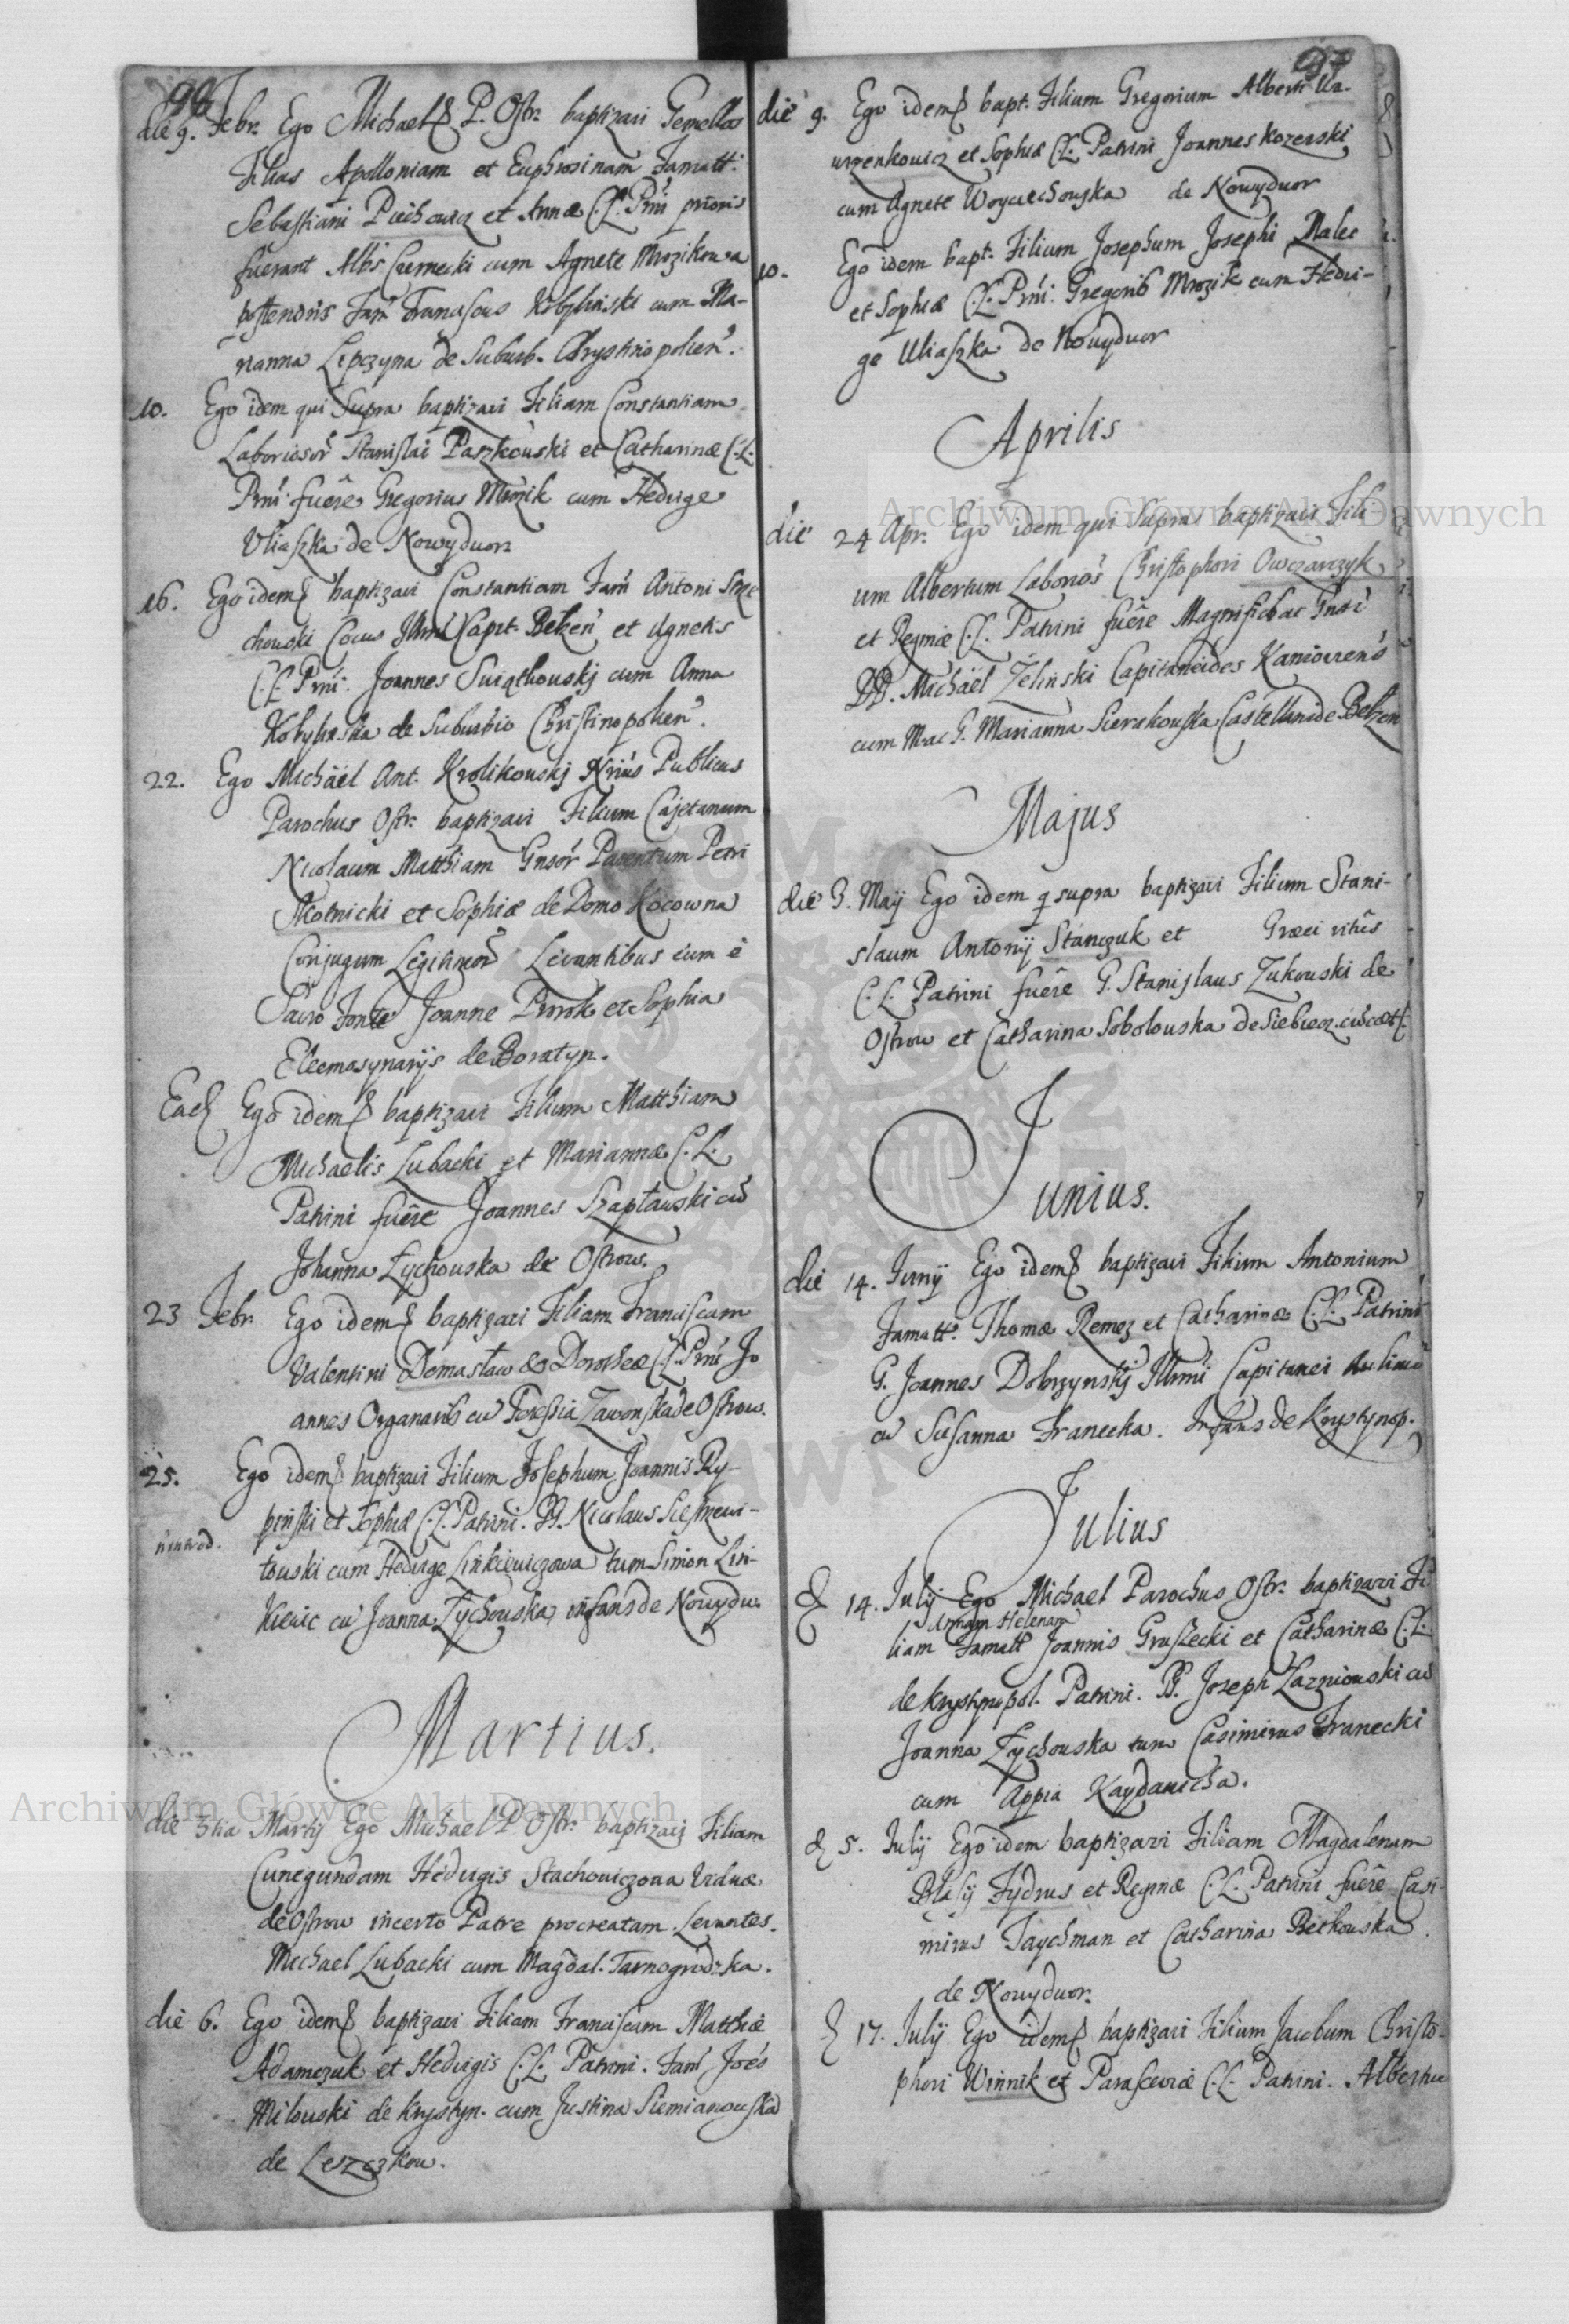 96
die 9. Febr. Ego Michael P. Ostr. baptizavi Gemellas
Filias Apolloniam et Euphrosinam Famatt.
Sebastiani Piechowicz et Annæ C.L. Prni prioris
fuerant Albs Czernecki cum Agnete Mrozikowa
Fam Franciscus Kobyliński cum Ma-
rianna Lipczyna de Suburb. Chrystinopolien.
10. Ego idem qui Supra baptizavi Filiam Constantiam
Laboriosor Stanislai Paszkowski et Catharinæ C.L.
Prni fuêre Gregorius Mrozik cum Hedvige
Uliaszka de Nowydwor
16. Ego idem baptizavi Constantiam Fam Antoni
chowski Cocus Illmi Capit. Belzen et Agnetis
C.L. Prni. Joannes Swiątkowskj cum Anna
Kobylinska de Suburbio Christinopolien.
22. Ego Michäel Ant. Krolikowskj Nrius Publicus
Parochus Ostr. baptizavi Filium Cajetanum
Nicolaum Matthiam Gnsor Parentum Petri
Młotnicki et Sophiæ de Domo Kocowna
Conjugum Legitimor Levantibus eum è
Sacro Fonte Joanne Prorok et Sophia
Eleemosynarijs de Boratyn.
Ead Ego idem baptizavi Filium Matthiam
Michaelis Lubacki et Mariannæ C.L.
Patrini fuêre Joannes Szaptawski cũ
Johanna Zychowska de Ostrow.
23 Febr. Ego idem baptizavi Filiam Franciscam
Valentini Domasław & Dorotheæ C.L. Prni Jo
annes Organarius cũ Teressia Zawonska de Ostrow.
25. Ego idem baptizavi Filium Josephum Joannis Ry-
pinski et Sophiæ C.L. Patrini. PP. Nicolaus
towski cum Hedvige Linkiewiczowa tum Simon Lin-
kiewic cũ Joanna Zychowska, infans de Nowydw.
Martius.
die 3tia Martij Ego Michael P Ostr. baptizavi Filiam
Cunegundam Hedvigis Stachowiczowa Viduæ
de Ostrow incerto Patre procreatam. Levantes.
Michael Lubacki cum Magdal. Tarnogrodzka.
die 6. Ego idem baptizavi Filiam Franciscam Matthiæ
Adamczuk et Hedvigis C.L. Patrini. Fam Joẽs
Milowski de Krystyn. cum Justina Siemianowska
de Leszczkow.
97
die 9. Ego idem bapt. Filium Gregorium Alberti Wa-
wrzenkowicz et Sophiæ C.L. Patrini Joannes Kozerski
cum Agnete Woyciechowska de Nowydwor
10. Ego idem bapt. Filium Josephum Josephi Malec
et Sophiæ C.L. Prni. Gregorius Mrozik cum Hedvi-
ge Uliaszka de Nowydwor
Aprilis
die 24 Apr. Ego idem qui supra baptizavi Fili
um Albertum Laborios Christophori Owczarczyk
et Reginæ C.L. Patrini fuêre Magnificus ac Gnsi
DD. Michäel Zelinski Capitaneides Kaniovens
cum Mac G. Marianna Sierakowska Castellanide Belzen
Majus
die 3. Maij Ego idem q supra baptizavi Filium Stani-
slaum Antonij Stanczuk et Græci ritûs
C.L. Patrini fuêre G. Stanislaus Zukowski de
Ostrow et Catharina Sobolowska de Siebiecz
Junius.
die 14. Junij Ego idem baptizavi Filium Antonium
Famatt. Thomæ Remez et Catharinæ C.L. Patrini
G. Joannes Dobrzynskj Illmi Capitanei
cũ Susanna Franecka. Infans de Krystynop.
Julius
d 14. Julij Ego Michael Parochus Ostr. baptizavi Fi
Annam Helenam
liam Famatt Joannis Gruszecki et Catharinæ C.L.
de Krystynopol. Patrini. PP. Joseph Lazniowski cũ
Joanna Zychowska tum Casimirus Franecki
cum Appia Kaydanicha.
d 5. Julij Ego idem baptizavi Filiam Magdalenam
Blasij Fydrus et Reginæ C.L. Patrini fuêre Casi-
mirus Taychman et Catharina Betkowska
de Nowydwor.
d 17. Julij Ego idem baptizavi Filium Jacobum Christo-
phori Winnik et Parasceviæ C.L. Patrini. Albertus
Archiwum Główne Akt Dawnych
Archiwum Główne Akt Dawnych